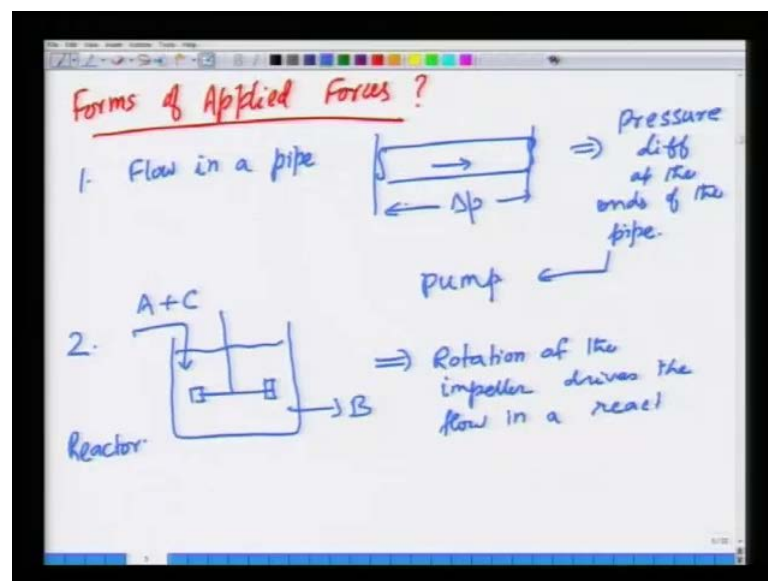 Forms of Applied Forces ?
1. Flow in a pipe
Δp
⇒ Pressure
diff
at the
ends of the
pipe.
pump
2.
A+C
B
Reactor.
⇒ Rotation of the
impeller drives the
flow in a react